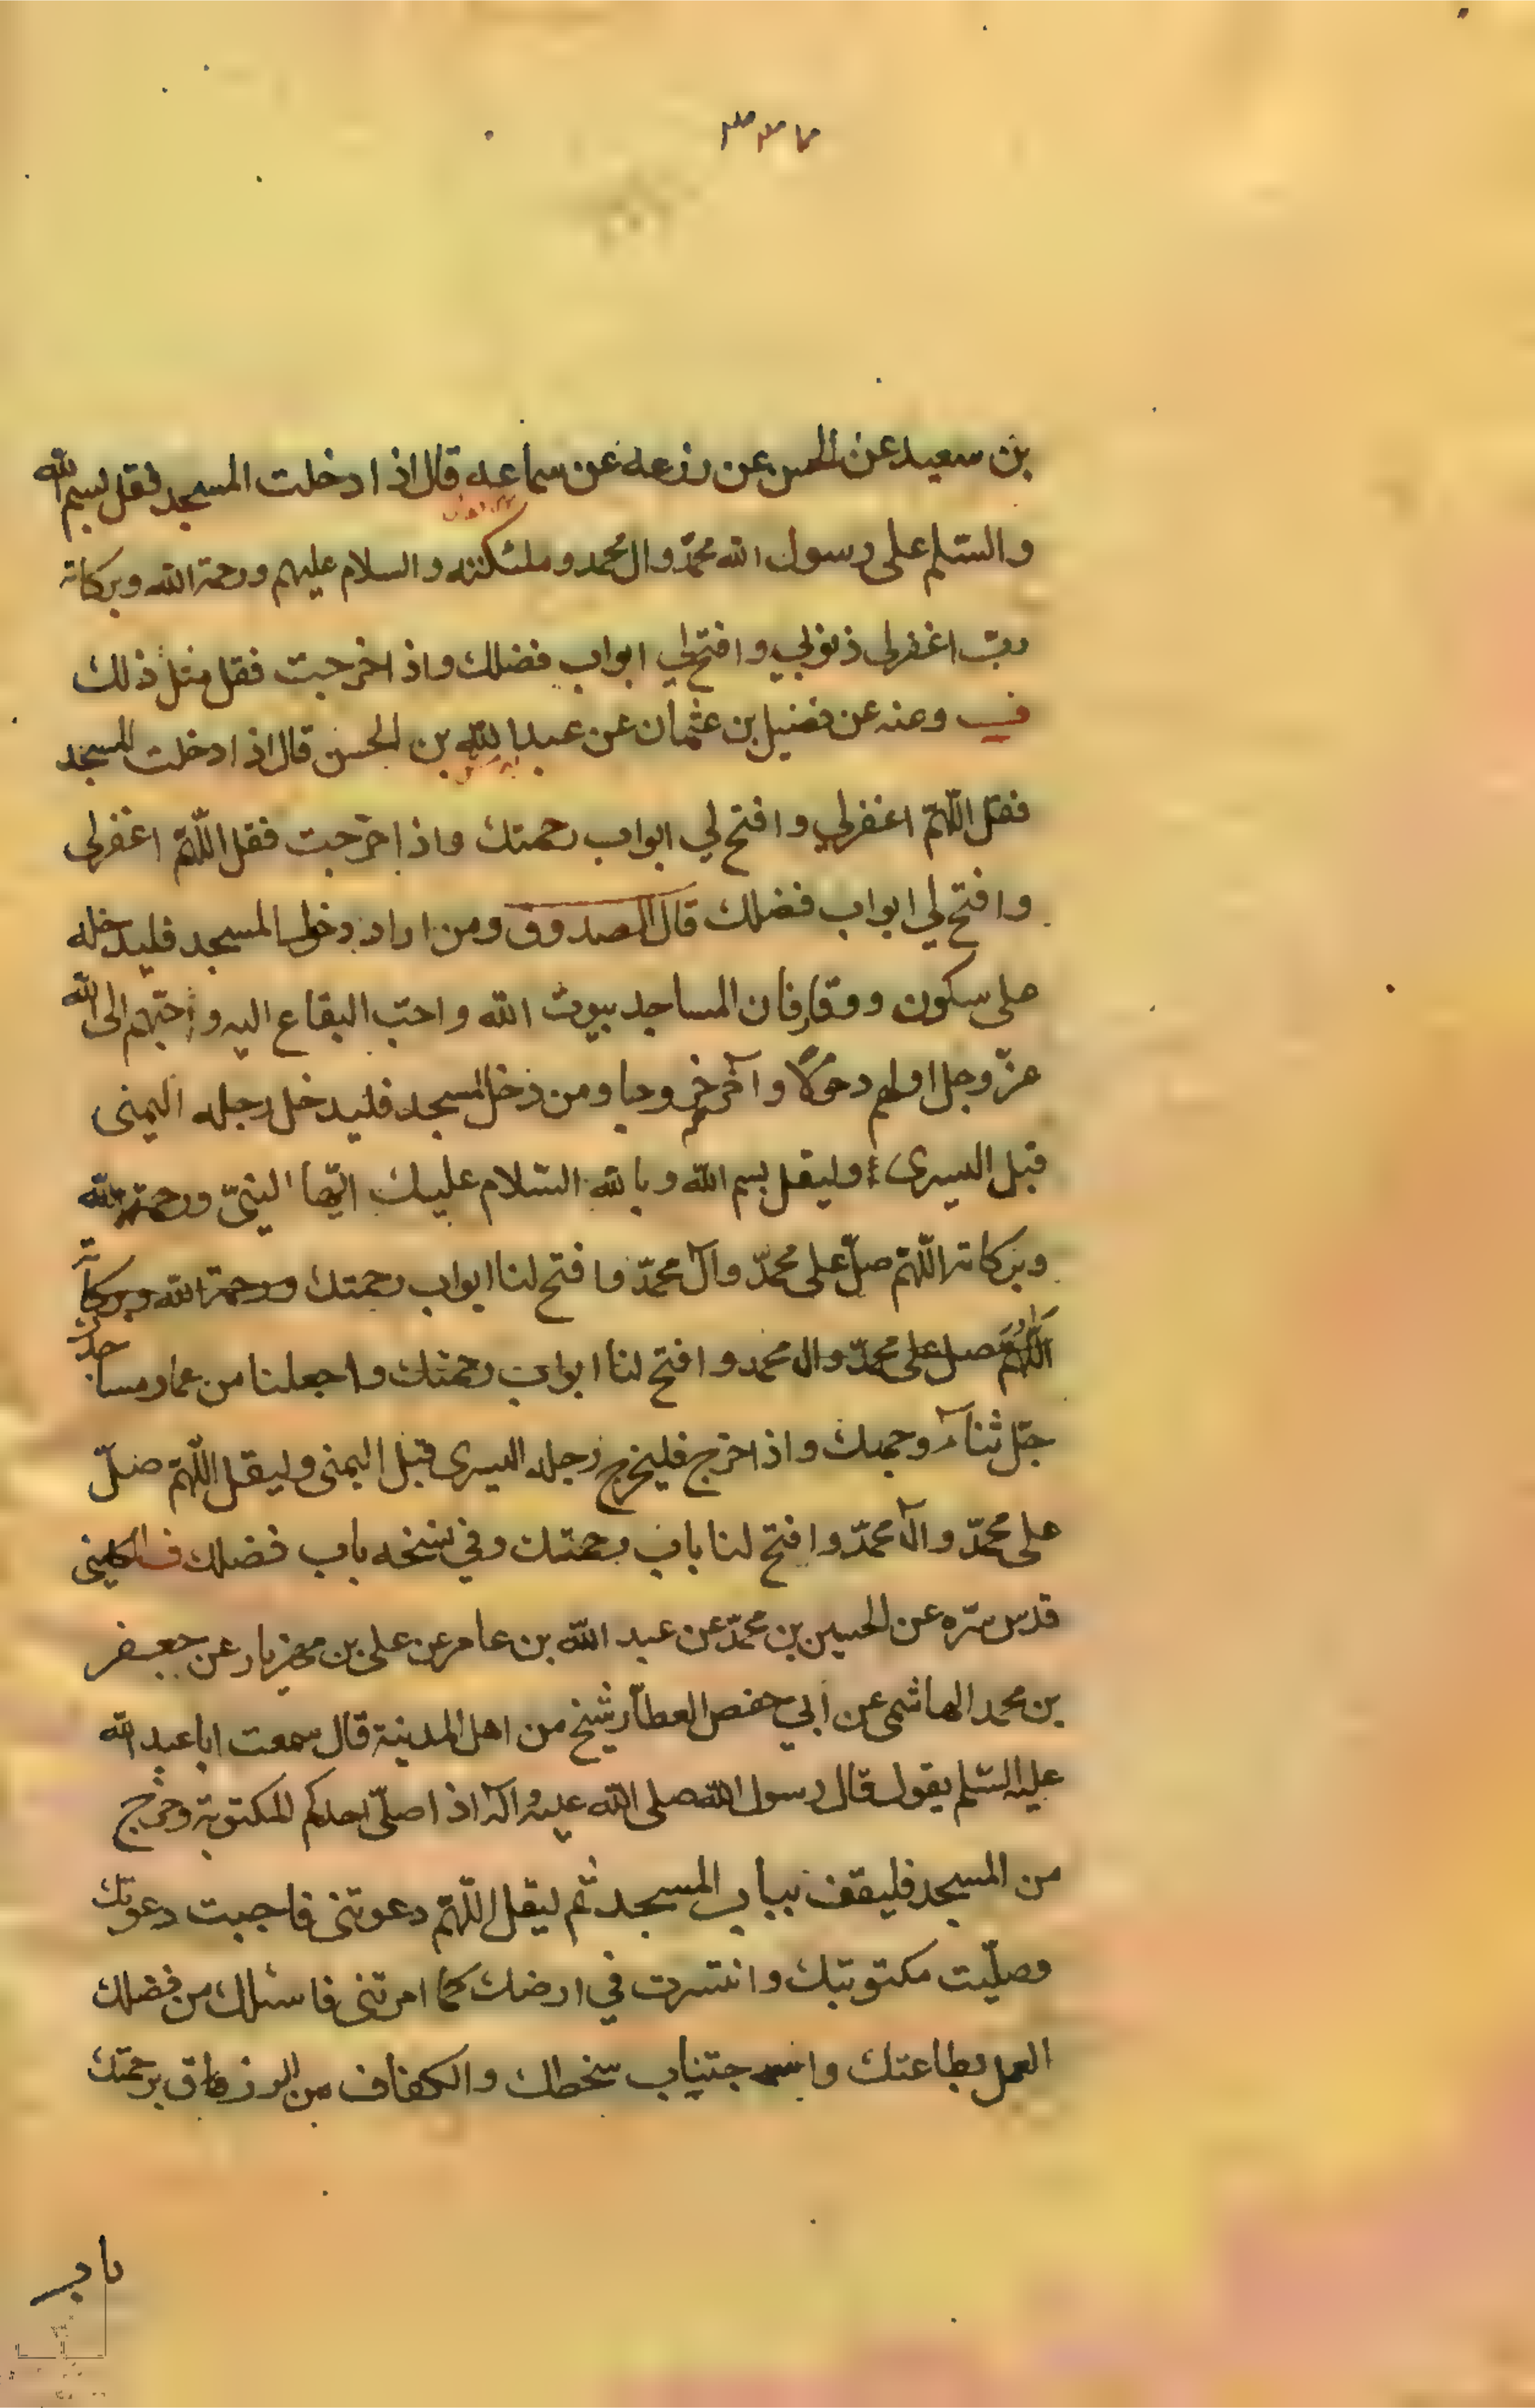 بن سعيد عن الحسن عن زرعه عن سماعه قال اذا دخلت المسجد فقل بسم الله
والسّلم على رسول الله محمّد وال محمد وملئكته والسلام عليهم ورحمة الله وبركاته
ربّ اغفرلى ذنوبي وافتح لي ابواب فضلك واذا خرجت فقل مثل ذلك
في وعنه عن فضيل بن عثمان عن عبد الله بن الحسن قال اذا دخلت المسجد
فقل اللّهمّ اغفرلي وافتح لي ابواب رحمتك واذا خرجت فقل اللّهمّ اغفرلى
وافتح لي ابواب فضلك قال الصدوق ومن اراد دخول المسجد فليدخله
على سكون ووقار فان المساجد بيوت الله واحبّ البقاع اليه واحبّهم الى الله
عزّ وجل اولهم دخولا وآخرهم خروجا ومن دخل المسجد فليدخل رجله اليمنى
قبل اليسرى وليقل بسم الله وبالله السّلام عليك ايّها النبيّ ورحمة الله
وبركاته اللّهمّ صلّ على محمّد وآل محمّد وافتح لنا ابواب رحمتك ورحمة الله وبركاته
اللّهُمَّ صل على محمّد وال محمد وافتح لنا ابواب رحمتك واجعلنا من عمار مساجدك
جلّ ثناء وجهك واذا خرج فليخرج رجله اليسرى قبل اليمنى وليقل اللّهمّ صلّ
على محمّد وآل محمّد وافتح لنا باب رحمتك وفي نسخه باب فضلك ف الكلينى
قدس سرّه عن الحسين بن محمّد عن عبد الله بن عامر عن على بن مهزيار عن جعفر
بن محمد الهاشمى عن أبي حفص العطّار شيخ من اهل المدينة قال سمعت ابا عبد الله
عليه السّلم يقول قال رسول الله صلى الله عليه وآله اذا صلّى احدكم المكتوبة وخرج
من المسجد فليقف بباب المسجد ثم ليقل اللّهمّ دعوتنى فاجبت دعوتك
وصلّيت مكتوبتك وانتشرت في ارضك كما امرتنى فاسئلك من فضلك
العمل بطاعتك واجتناب سخطك والكفاف من الرزق برحمتك
باب